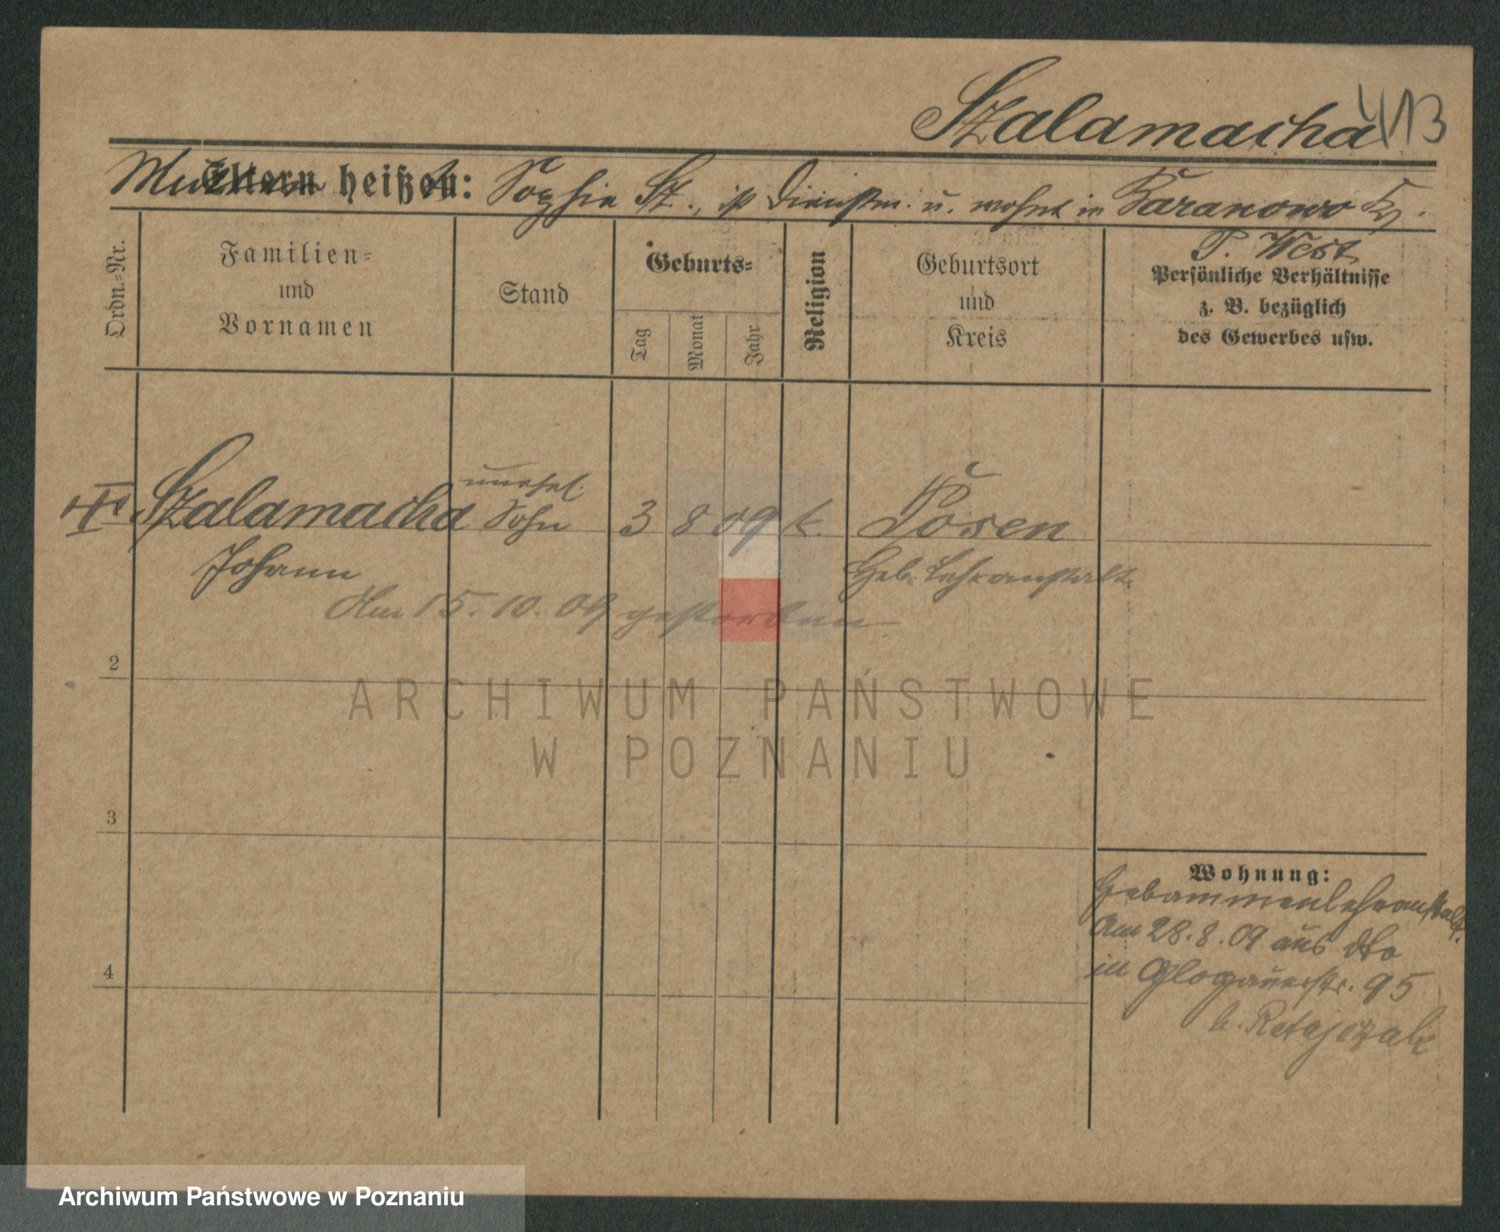 Szalamacha 413
Mutter heißt: Sophie Sz., ist Dienstm. u. wohnt in Baranowo Kr.
P. West
Ordn.-Nr.
Familien-
und
Vornamen
Stand
Geburts-
Tag
Monat
Jahr
Religion
Geburtsort
und
Kreis
Persönliche Verhältnisse
z. B. bezüglich
des Gewerbes usw.
unehel.
Szalamacha Sohn 3 8 09 k. Posen
Johann Heb. Lehranstalt
Am 15.10.09 gestorben
2
3
4
Wohnung:
Hebammenlehranstalt.
Am 28.8.09 aus dto
in Glogauerstr. 95
b. Ratajczak
ARCHIWUM PAŃSTWOWE
W POZNANIU
Archiwum Państwowe w Poznaniu